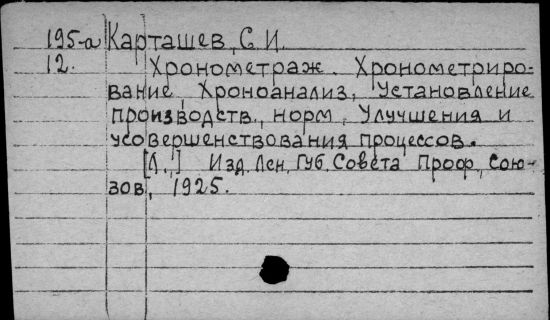 195-а Карташев, С. И.
12. Хронометраж. Хронометриро-
вание, Хроноанализ, Установление
производств., норм, Улучшения и
усовершенствования процессов.
[Л.,] Изд. Лен. Губ. Совета Проф., Сою-
зов, 1925.